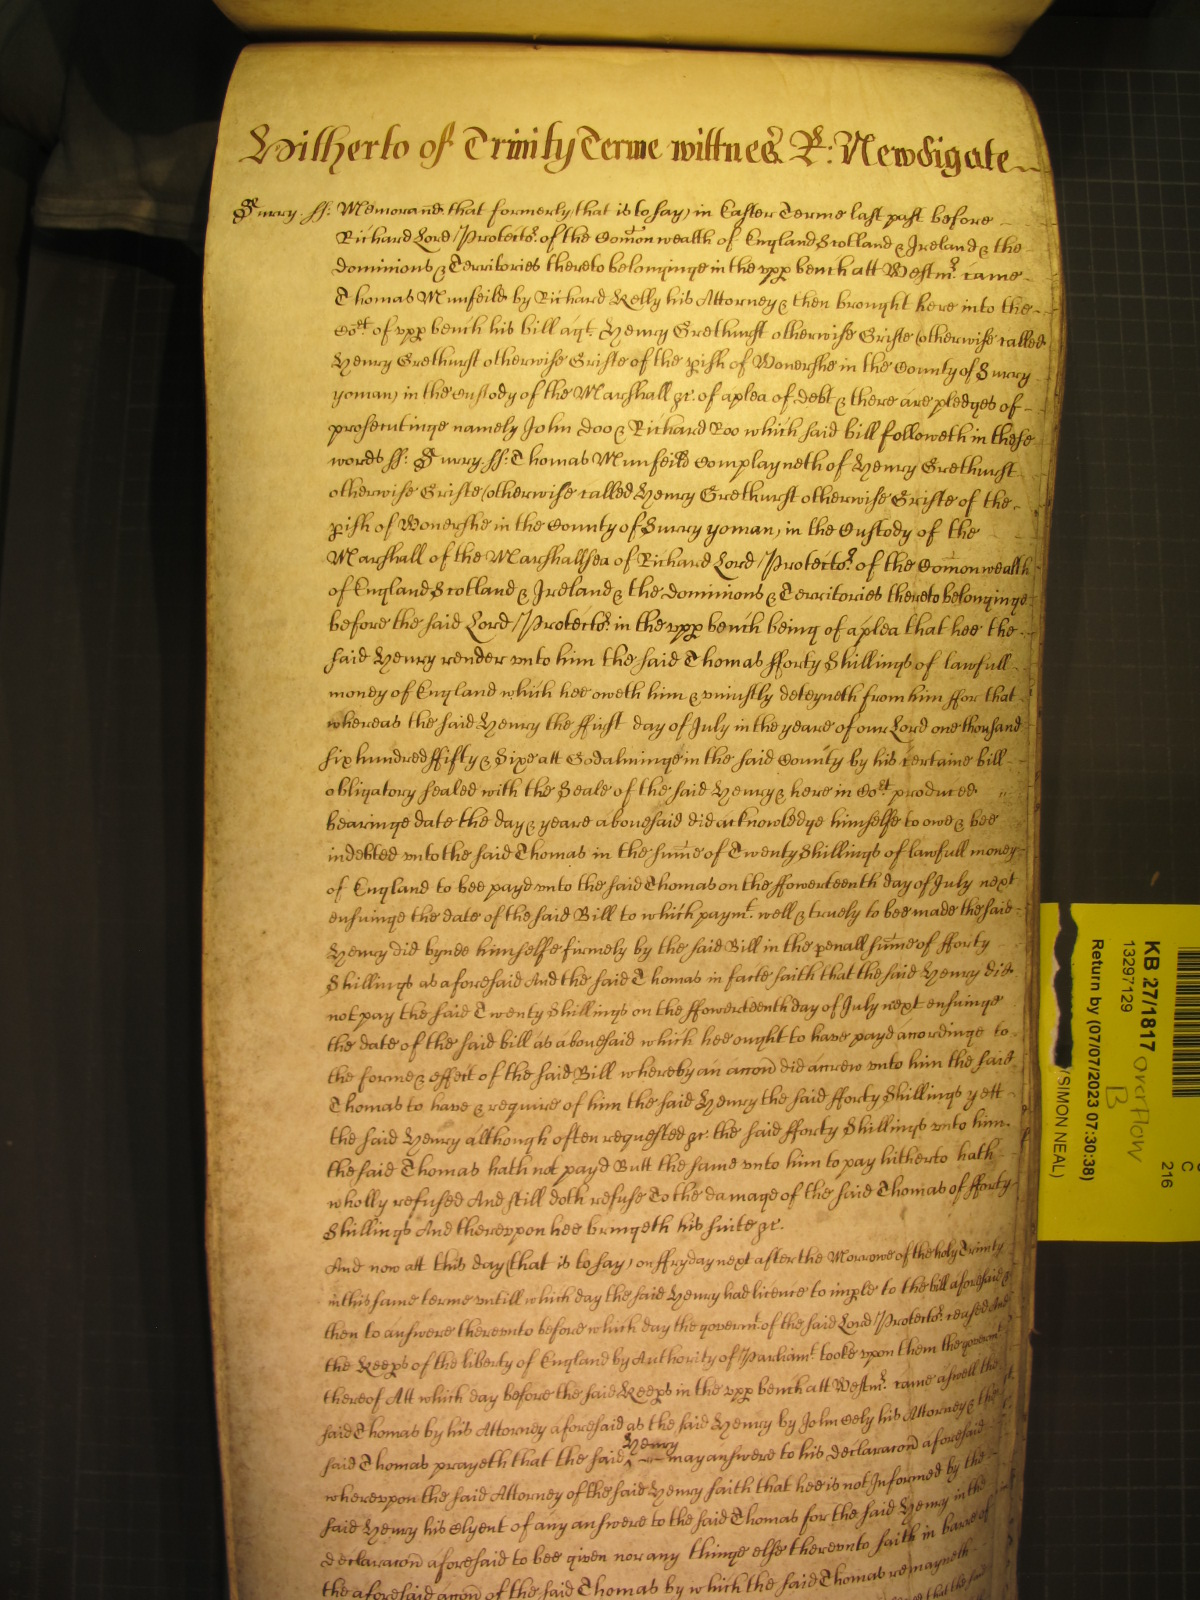 Hitherto of Trinity Terme wittnes R: Newdigate
Surry ss: Memorand that formerly that is to say) in Easter Terme last past before
Richard Lord Protector of the Comon wealth of England Scotland & Ireland & the
dominions & Territories thereto belonginge in the upp bench att Westmr came
Thomas Munfeild by Richard Kelly his Attorney & then brought here into the
Cort of upp bench his bill agt Henry Grethurst otherwise Griste (otherwise called
Henry Grethurst otherwise Griste of the pish of Wonershe in the County of Surry
yoman) in the Custody of the Marshall &c. of a plea of debt & there are pledges of
prosecutinge namely John Doo & Richard Roo which said bill followeth in these
words ss: Surry ss: Thomas Munfeild Complayneth of Henry Grethurst
otherwise Griste (otherwise called Henry Grethurst otherwise Griste of the
pish of Wonershe in the County of Surry yoman) in the Custody of the
Marshall of the Marshallsea of Richard Lord Protector of the Comonwealth
of England Scotland & Ireland & the dominions & Territories thereto belonginge
before the said Lord Protector in the upp bench being of a plea that hee the
said Henry render unto him the said Thomas fforty Shillings of lawfull
money of England which hee oweth him & uniustly deteyneth from him ffor that
whereas the said Henry the ffirst day of July in the yeare of our Lord one thousand
six hundred ffifty & Sixe att Godalminge in the said County by his certaine bill
obligatory sealed with the Seale of the said Henry & here in Cort produced
bearinge date the day & yeare abovesaid did acknowledge himselfe to owe & bee
indebted unto the said Thomas in the sume of Twenty Shillings of lawfull money
of England to bee payd unto the said Thomas on the ffowerteenth day of July next
ensuinge the date of the said Bill to which paymt well & truely to bee made the said
Henry did bynde himselfe firmely by the said Bill in the penall sume of fforty
Shillings as aforesaid And the said Thomas in facte saith that the said Henry did
not pay the said Twenty Shillings on the ffowerteenth day of July next ensuinge
the date of the said bill as abovesaid which hee ought to have payd accordinge to
the forme & effect of the said Bill whereby an accon did accrew unto him the said
Thomas to have & require of him the said Henry the said fforty Shillings yett
the said Henry although often requested &c. the said fforty Shillings unto him
the said Thomas hath not payd Butt the same unto him to pay hitherto hath
wholly refused And still doth refuse To the damage of the said Thomas of fforty
Shillings And thereupon hee bringeth his suite &c.
And now att this day (that is to say) on ffryday next after the Morrowe of the holy Trinity
in this same terme untill which day the said Henry had licence to imple to the bill aforesaid &
then to answere thereunto before which day the governmt of the said Lord Protector ceased And
the Keeps of the liberty of England by Authority of Parliamt tooke upon them the governmt
thereof Att which day before the said Keeps in the upp bench att Westmr came aswell the
said Thomas by his Attorney aforesaid as the said Henry by John Cely his Attorney & the
said Thomas prayeth that the said Henry may answere to his declaracon aforesaid
whereupon the said Attorney of the said Henry saith that hee is not Informed by the
said Henry his Clyent of any answere to the said Thomas for the said Henry in the
declaracon aforesaid to bee given nor any thinge else thereunto saith in barre of
the aforesaid accon of the said Thomas by which the said Thomas remayneth
KB 27/1817
13297129
Return by (07/07/2023 07:30:38)
SIMON NEAL)
overflow
B
C
216